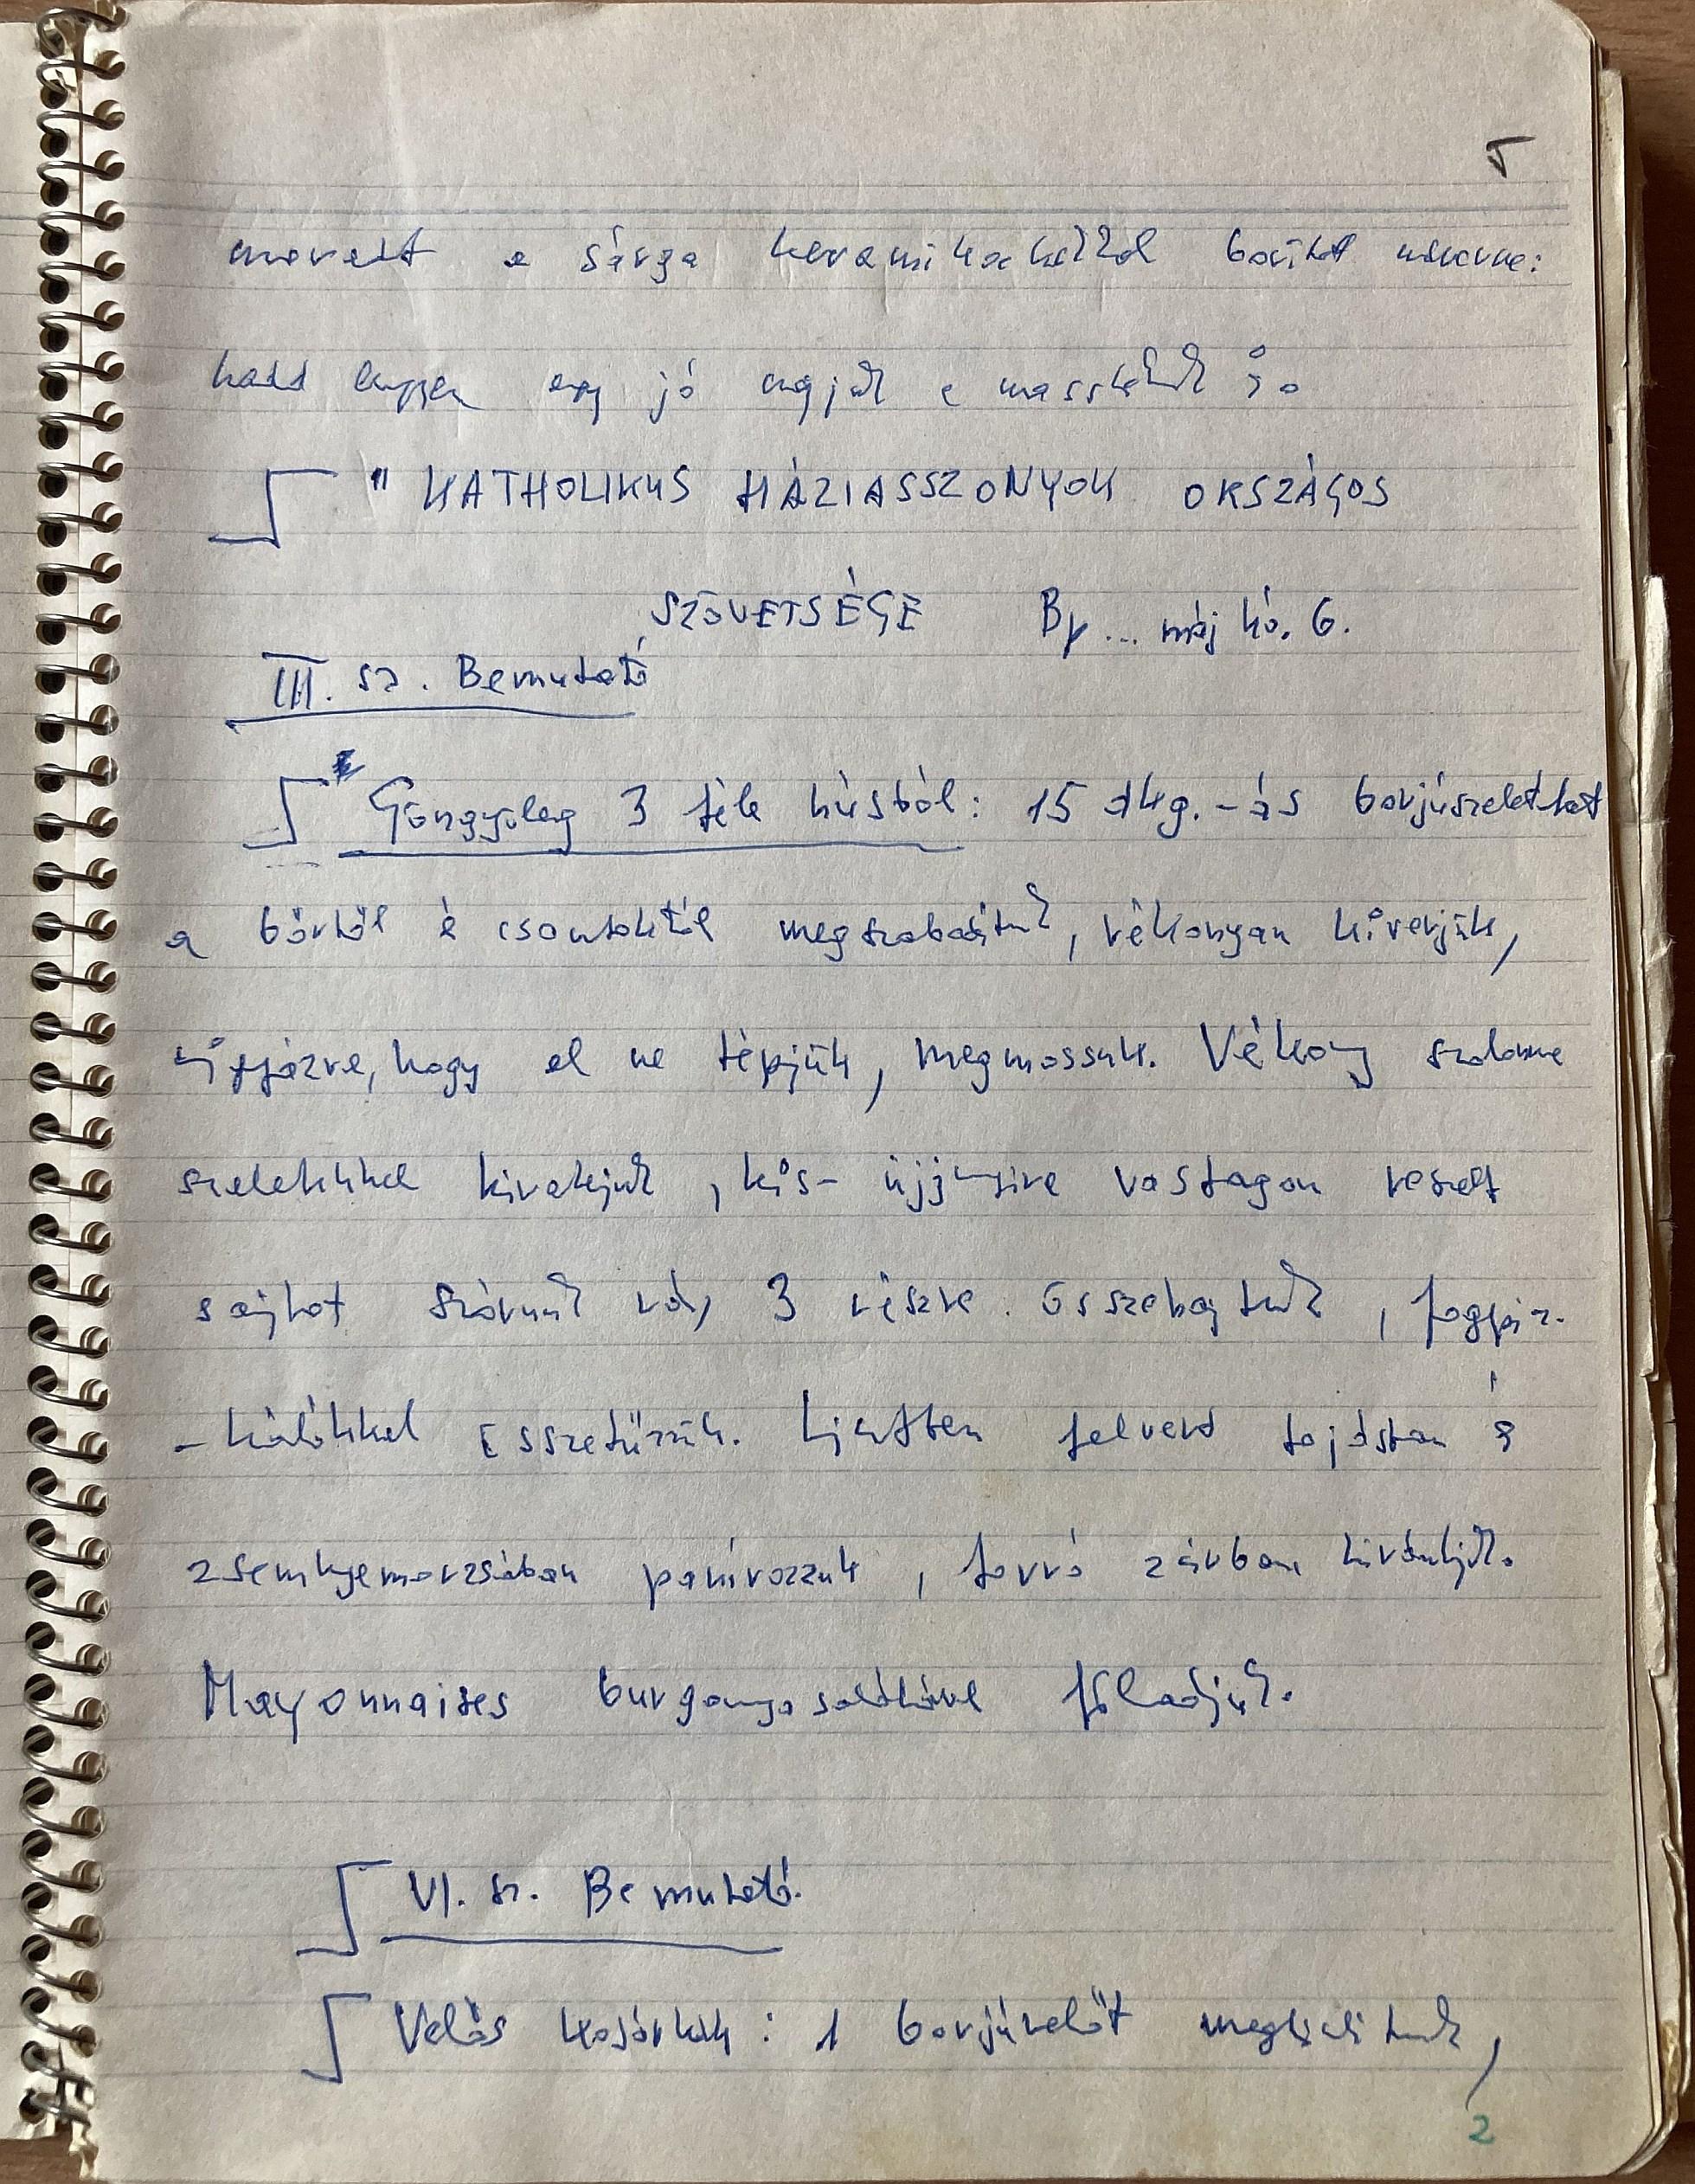 5
a sárga keramikákkal borított
hadd legyen egy jó napjuk a
" KATHOLIKUS HÁZIASSZONYOK ORSZÁGOS
SZÖVETSÉGE Bp... máj hó. 6.
III. sz. Bemutató
Göngyöleg 3 féle húsból: 15 dkg.-ás borjúszeleteket
a bőrtől é csontoktól megszabadítunk, vékonyan kiverjük,
vigyázva, hogy el ne tépjük, megmossuk. Vékony szalonna
szeletekkel kirakjuk, kis- ujjnyira vastagon reszelt
sajtot szórunk rá, 3 részre összehajtjuk, fogpisz-
-kálókkal össszetűzzük. Lisztben felvert tojásban és
zsemlyemorzsában panírozzuk, forró zsírban kirántjuk.
Mayonnaises burgonyasalátával föladjuk.
VI. sz. Bemutató.
Velős kosárkák: 1 borjúvelőt megtisztítunk,
2